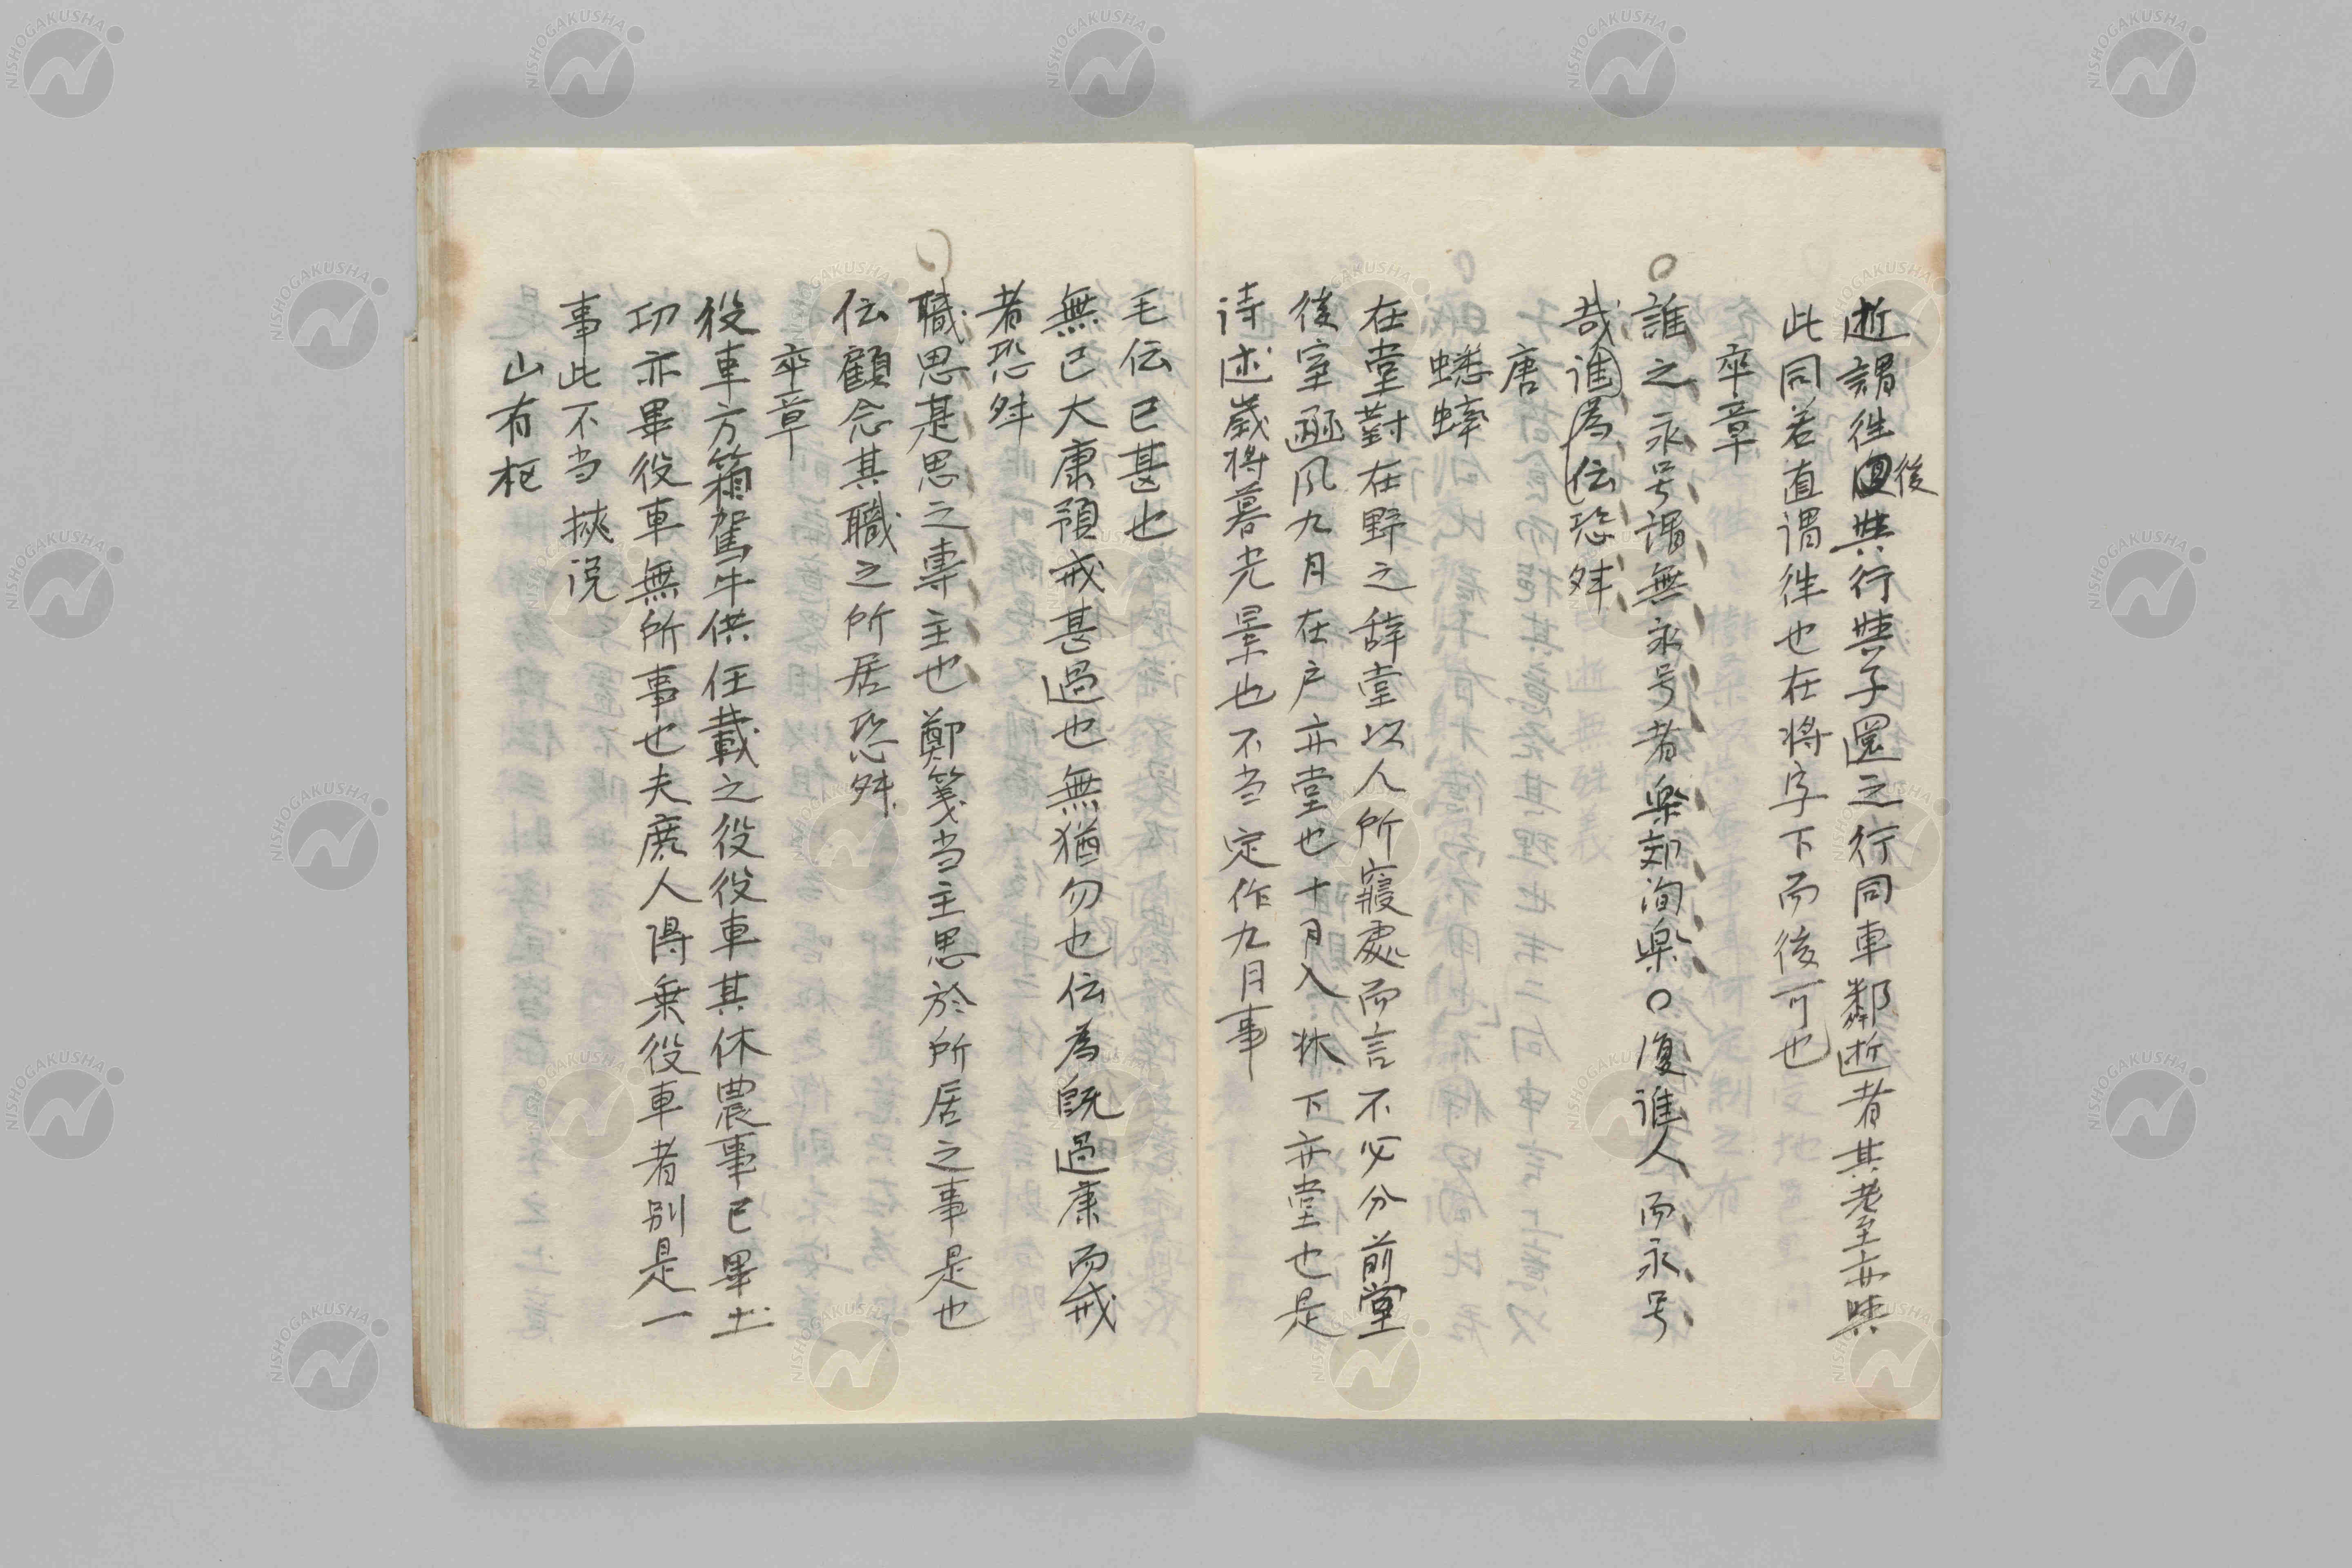 逝謂徃後與行與子還之行同車鄰逝者其耄至亦與
此同若直謂徃也在将字下而後可也
卒章
〇誰之永号謂無永号者楽郊洵楽〇復誰人而永号
哉誰為伝恐舛
唐
蟋蟀
在堂對在野之辞堂以人所寢處而言不必分前堂
後室豳風九月在戸亦堂也十月入牀下亦堂也是
诗述歳将暮光景也不当定作九月事
毛伝已甚也
無已大康預戒甚過也無猶勿也伝為既過康而戒
者恐舛
〇職思是思之専主也鄭箋当主思於所居之事是也
伝顧念其職之所居恐舛
卒章
役車方箱駕牛供任載之役役車其休農事已畢土
功亦畢役車無所事也夫庶人得乗役車者別是一
事此不当挾说
山有枢
NISHOGAKUSHA